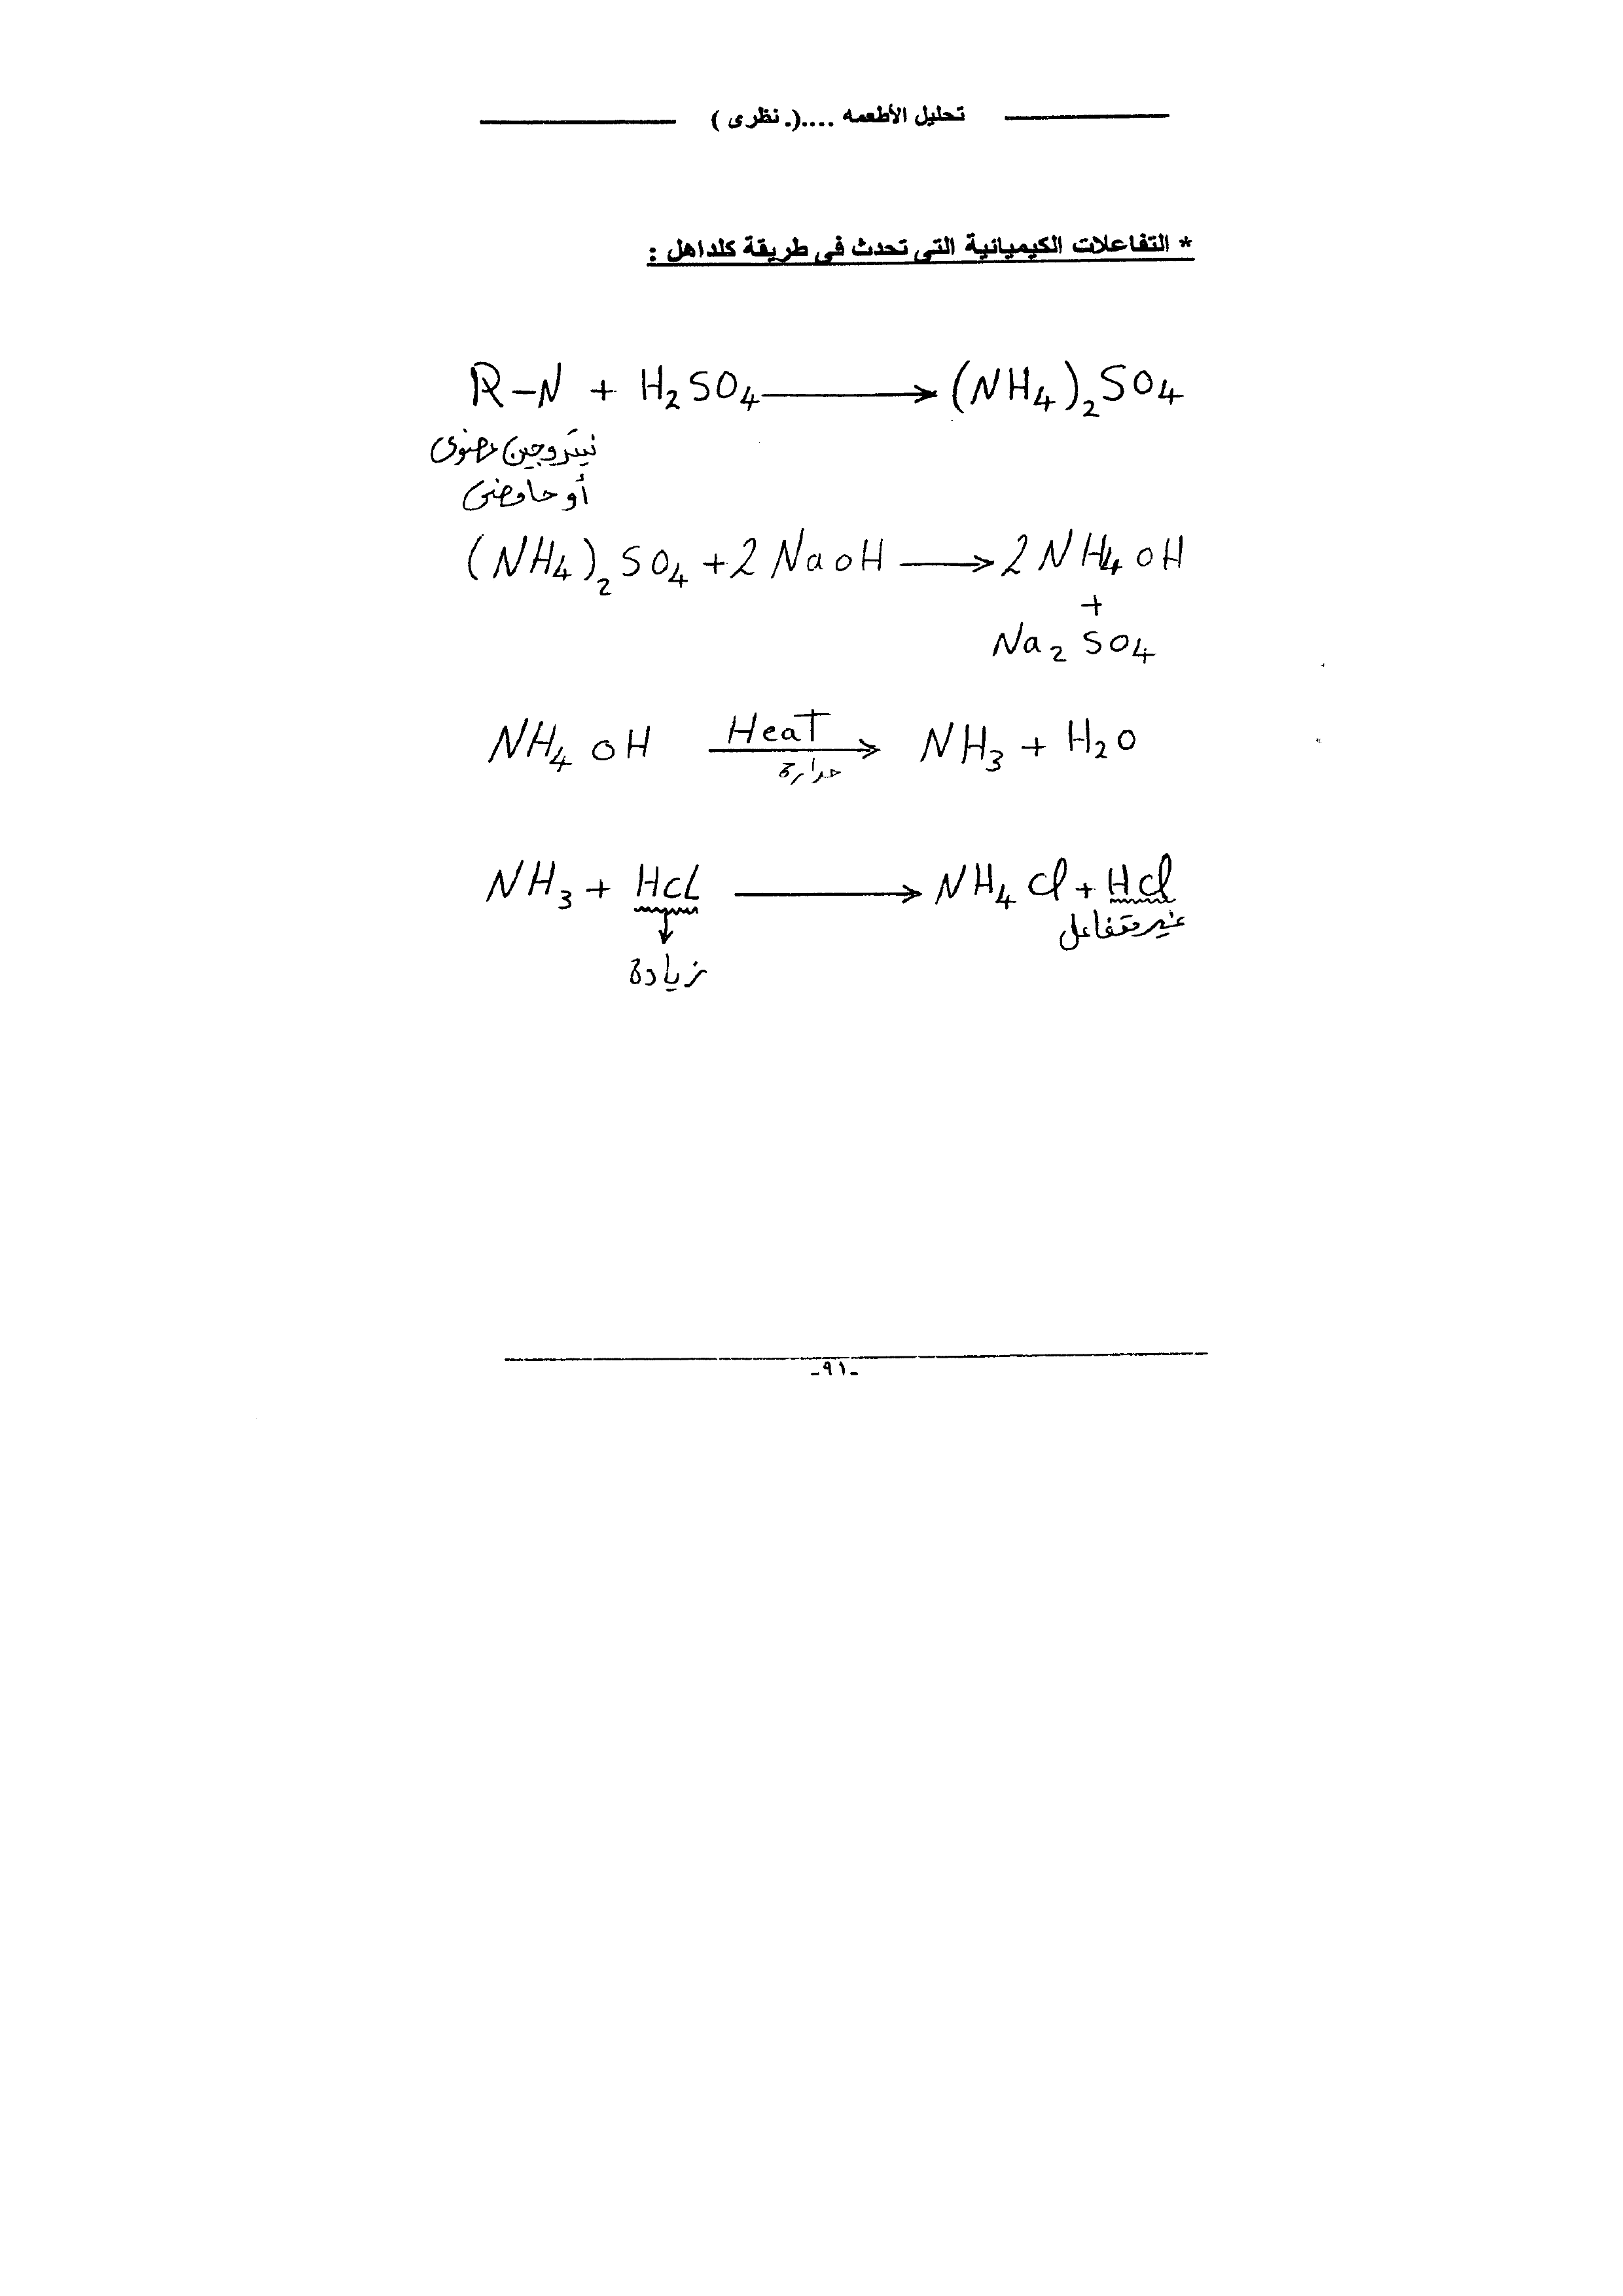 تحليل الأطعمه ....(. نظرى )
* التفاعلات الكيميائية التى تحدث فى طريقة كلداهل :
R-N + H₂SO₄ ⟶ (NH₄)₂SO₄
نيتروجين عضوى
أو حامضى
(NH₄)₂SO₄ + 2 NaoH ⟶ 2 NH₄oH
+
Na₂SO₄
NH₄oH ⟶ NH₃ + H₂O
HeaT
حرارة
NH₃ + HCL ⟶ NH₄Cl + HCl
غير متفاعل
زيادة
-٩١-